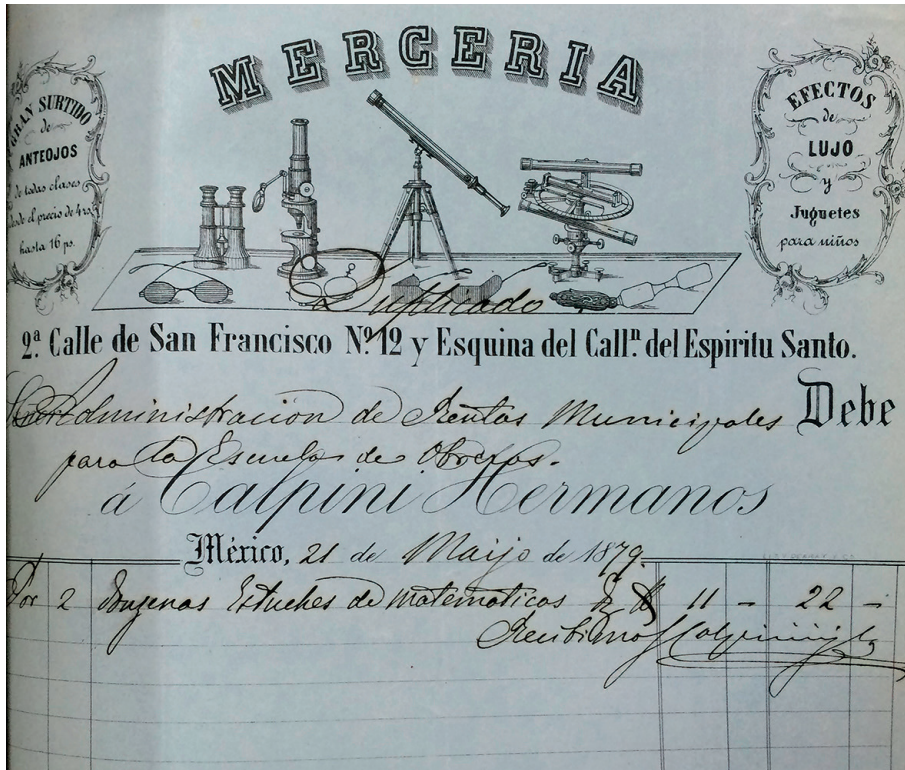 MERCERIA
GRAN SURTIDO
de
ANTEOJOS
de todas clases
desde el precio de 4 rs.
hasta 16 ps.
EFECTOS
de
LUJO
y
Juguetes
para niños
Duplicado
2ª. Calle de San Francisco Nº. 12 y Esquina del Callⁿ. del Espiritu Santo.
Administracion de Rentas Municipales Debe
para la Escuela de Obreros.
á Calpini Hermanos
México, 21 de Maijo de 1879.
Por 2 Douzenas Estuches de Matematicas 11 - 22 -
Recibimos Calpini